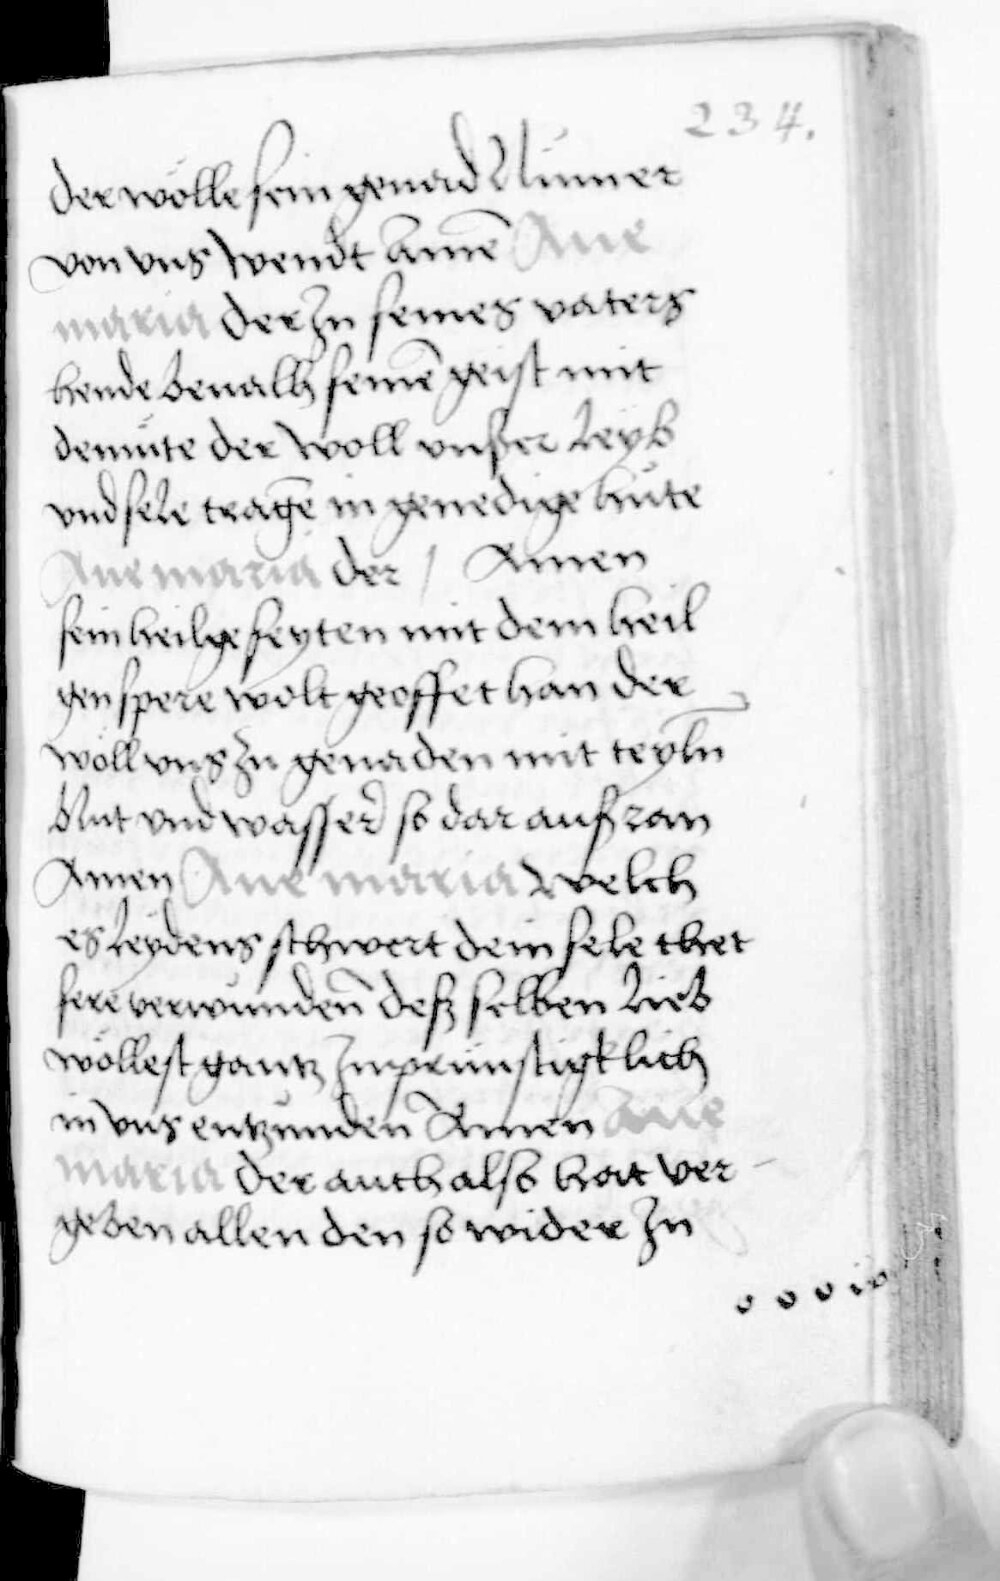 234.
der wölle sein genad Nümer
von vns wendt Amē Aue
maria der zu seines vaters
hende beualh seinē geist mit
demüte der woll vnßer leyb
vnd sele tragē in genedige hüte
Aue maria der / Amen
sein heilge seyten mit dem heil
gen spere wolt geoffet han der
wöll vns zu genaden mit teyln
blut vnd wasser so dar auß ran
Amen Aue maria welch
es leydens schwert dein sele thet
sere verwunden deß selben lieb
wöllest gantz Inprünstigklich
in vns entzunden Amen Aue
maria der auch also hat ver
geben allen den so wider zu